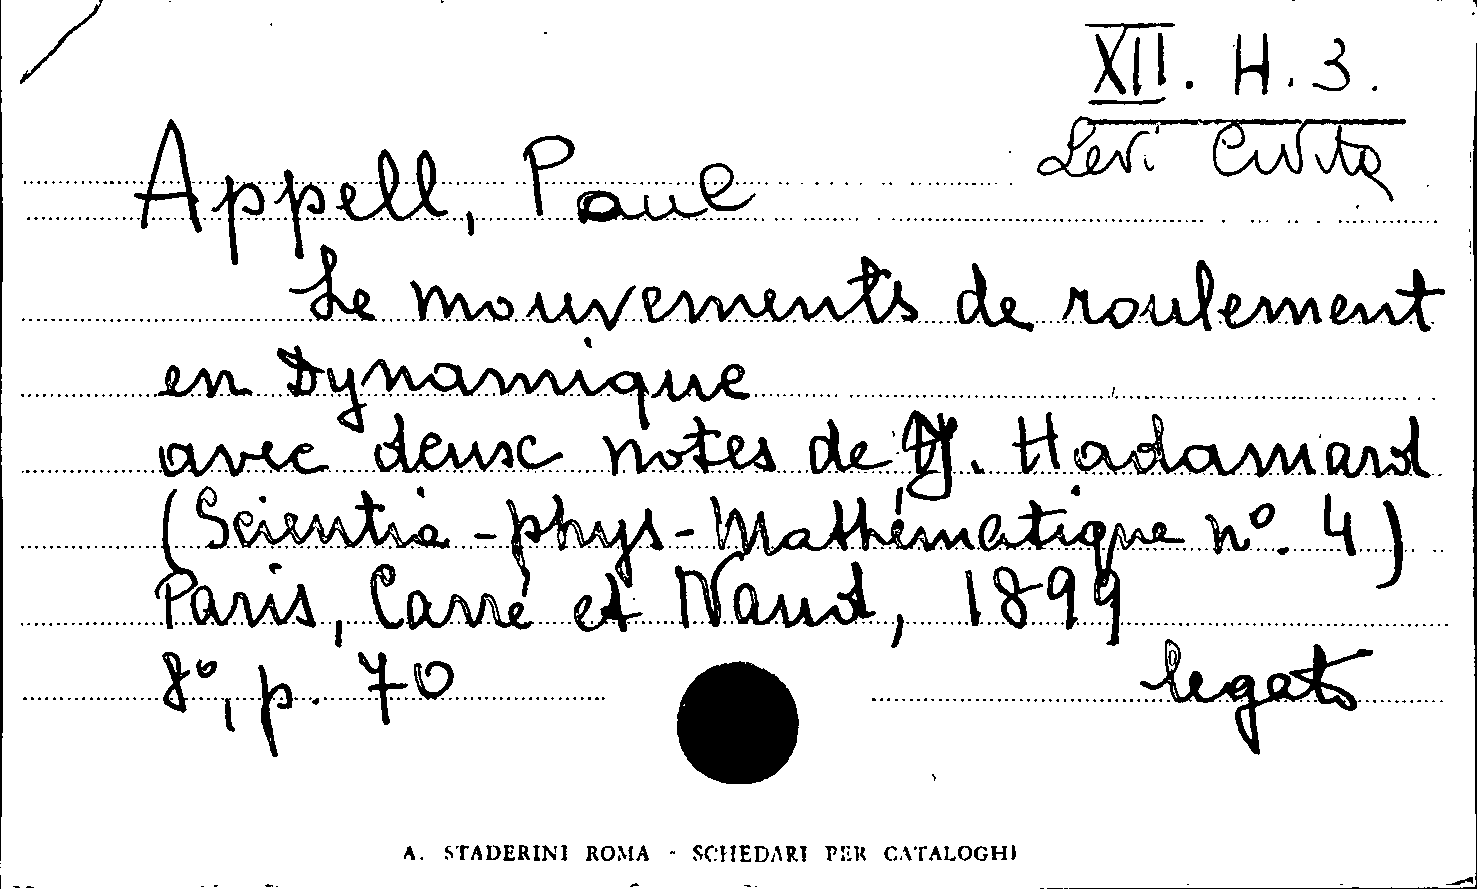 XII. H. 3.
Levi Civita
Appell, Paul
Le mouvements de roulement
en Dynamique
avec deux notes de J. Hadamard
(Scientia - phys - Mathématique nº. 4)
Paris, Carré et Naud, 1899
8º, p. 70
legato
A. STADERINI ROMA - SCHEDARI PER CATALOGHI